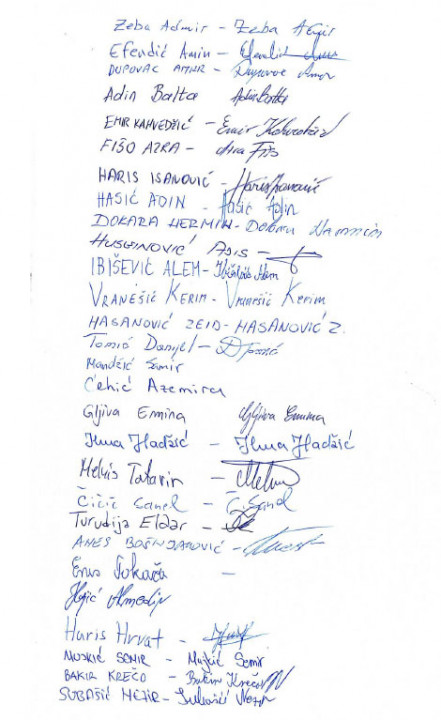 Zeba Admir - Zeba A
Efendić Amin -
DUPOVAC AMAR -
Adin Balta Adin Balta
EMIR KAHVEDŽIĆ - Emir Kahvedžić
FIŠO AZRA -
HARIS ISANOVIĆ - Haris Isanović
HASIĆ ADIN - Hasić Adin
DOKARA HERMIN -
HUSEINOVIĆ ADIS -
IBIŠEVIĆ ALEM -
VRANEŠIĆ KERIM - Vranešić Kerim
HASANOVIĆ ZEID - HASANOVIĆ Z.
Tomić Danijel - D Tomić
Mandžić Samir
Ćehić Azemira
Gljiva Emina Gljiva Emina
Ilma Hadžić - Ilma Hadžić
Melvis Tatarin -
Čičić Sanel - Č. Sanel
Turudija Eldar -
ANES BOŠNJATOVIĆ -
Enus -
Haris Hrvat -
MUJKIĆ SEMIR - Mujkić Semir
BAKIR KREČO - Bakir Krečo
SUBAŠIĆ NEZIR - Subašić Nezir